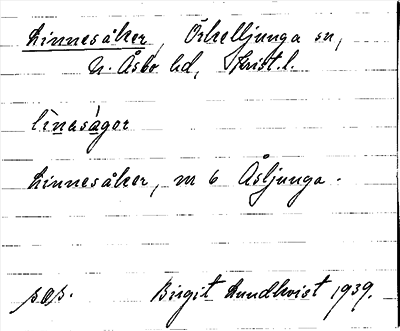 Linnesåker, Örkelljunga sn,
N. Åsbo hd, Krist. l.
lìnəsàgər
Linnesåker, m 6 Åsljunga.
Birgit Lundkvist 1939.